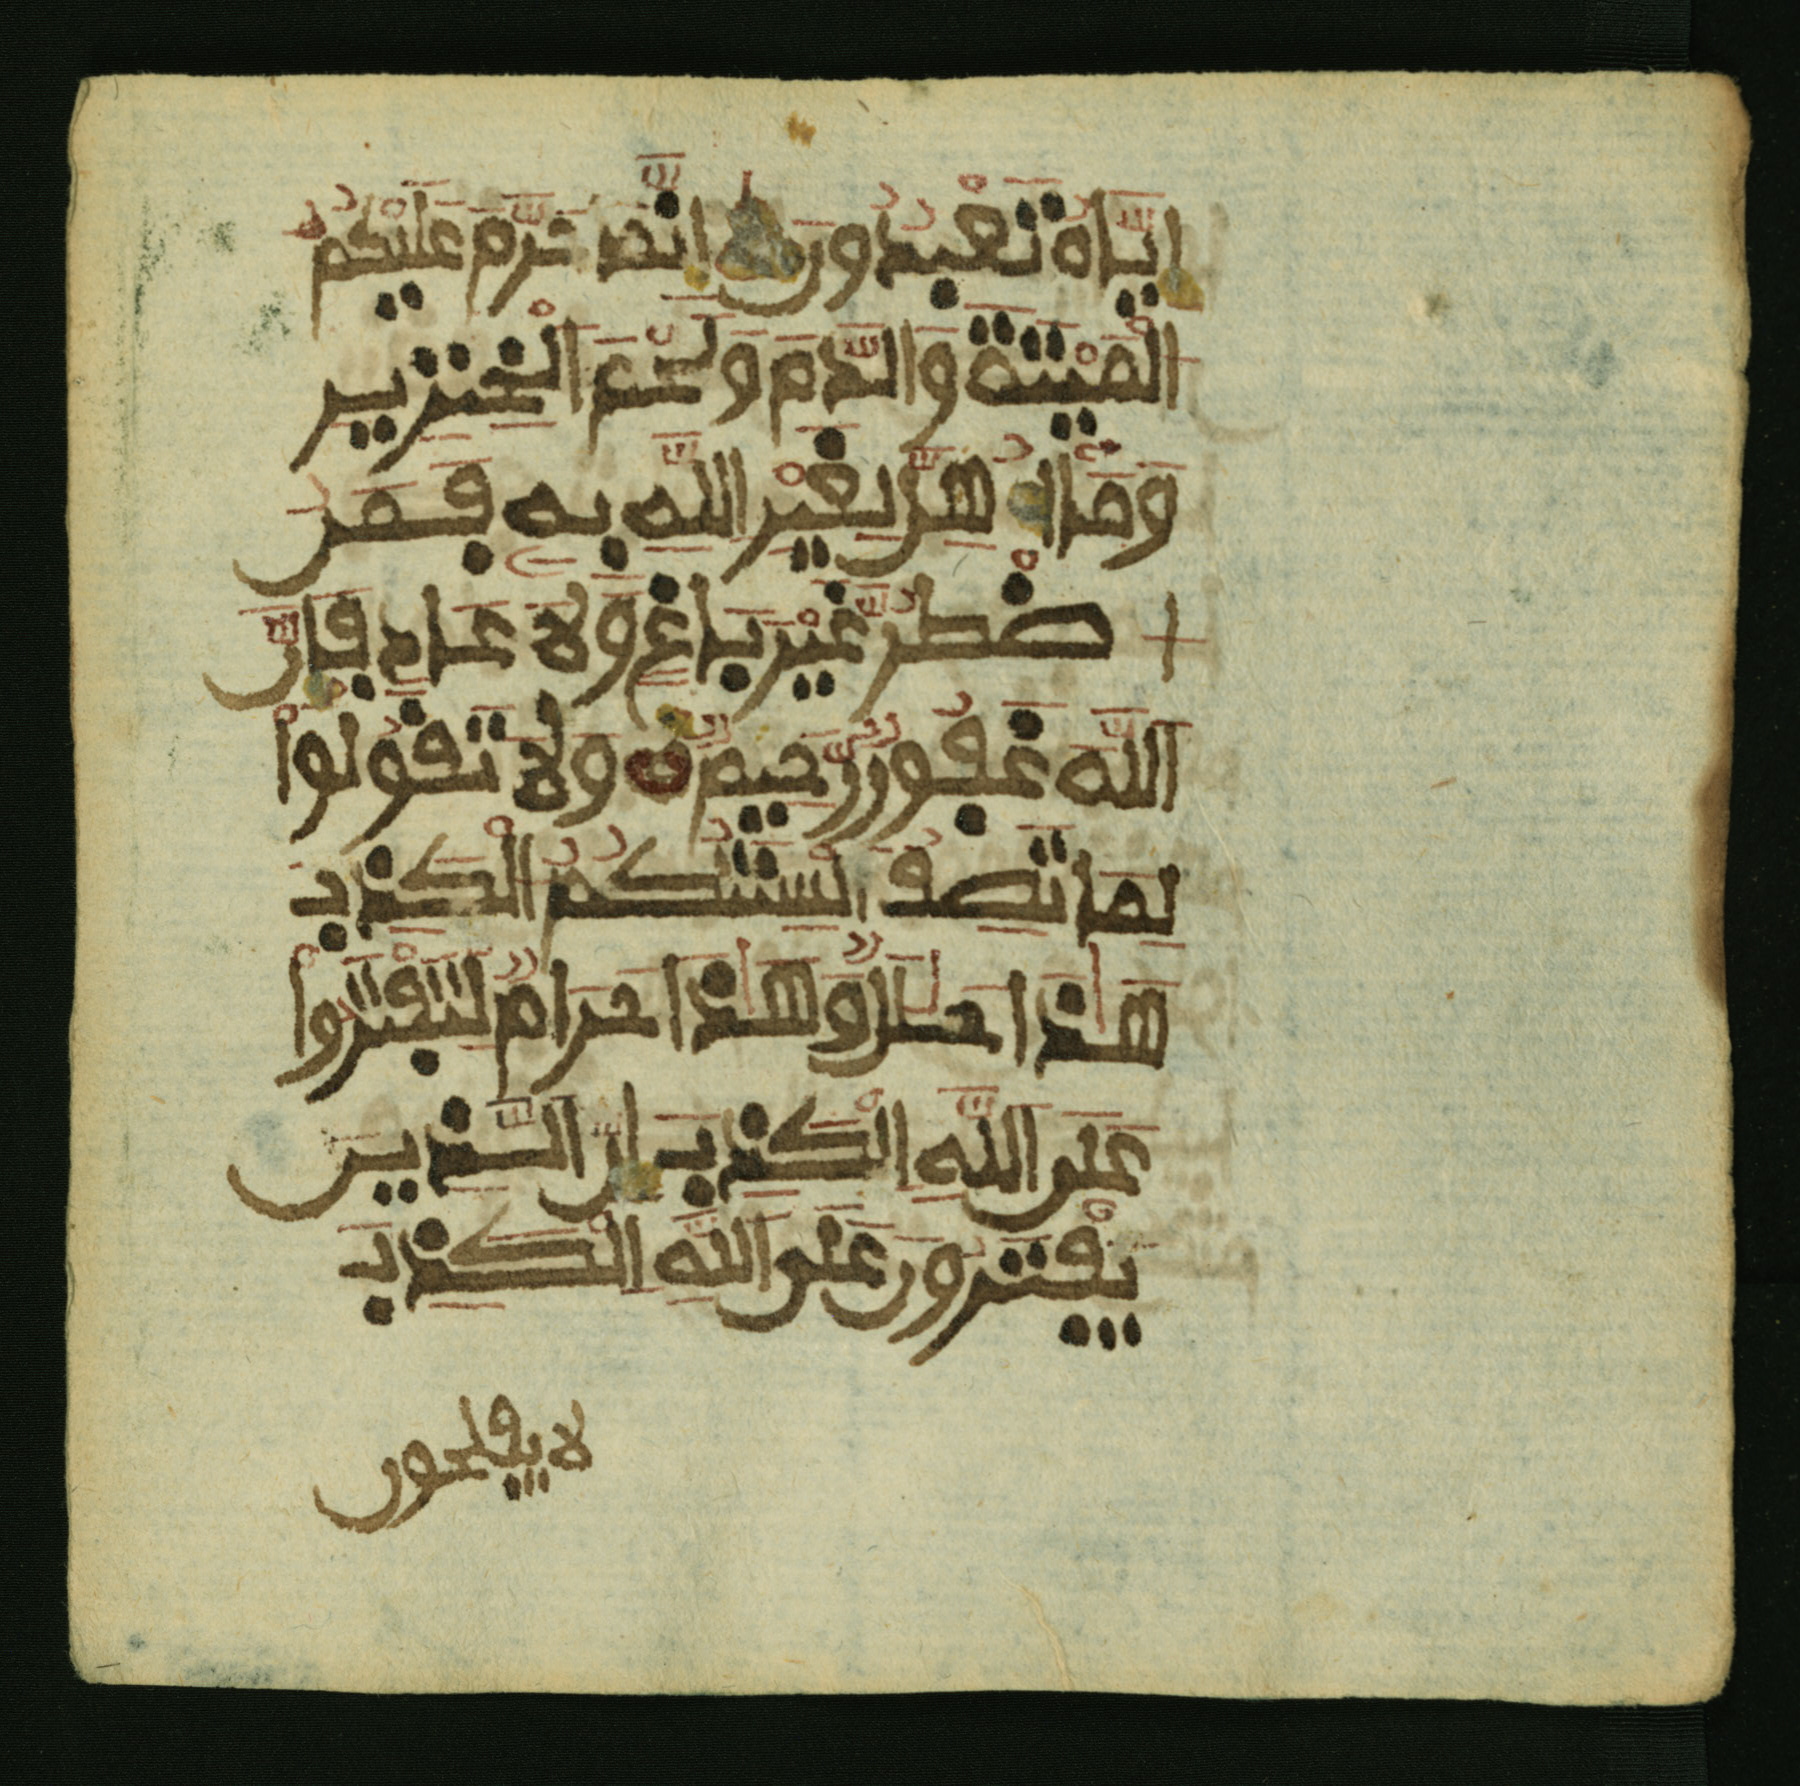 اِيَّاهُ تَعْبُدُونَ اِنَّمَا حَرَّمَ عَلَيْكُمُ
الْمَيْتَةَ وَالدَّمَ وَلَحْمَ الْخِنزِيرِ
وَمَا أُهِلَّ لِغَيْرِ اللَّهِ بِهِ فَمَنُ
اضْطُرَّ غَيْرَ بَاغٍ وَلَا عَادٍ فَإِنَّ
اللَّهَ غَفُورٌ رَّحِيمٌ وَلَا تَقُولُواْ
لِمَا تَصِفُ أَلْسِنَتُكُمُ الْكَذِبَ
هَٰذَا حَلَٰلٌ وَهَٰذَا حَرَامٌ لِّتَفْتَرُواْ
عَلَى اللَّهِ الْكَذِبَ إِنَّ الَّذِينَ
يَفْتَرُونَ عَلَى اللَّهِ الْكَذِبَ
لا يفلحون